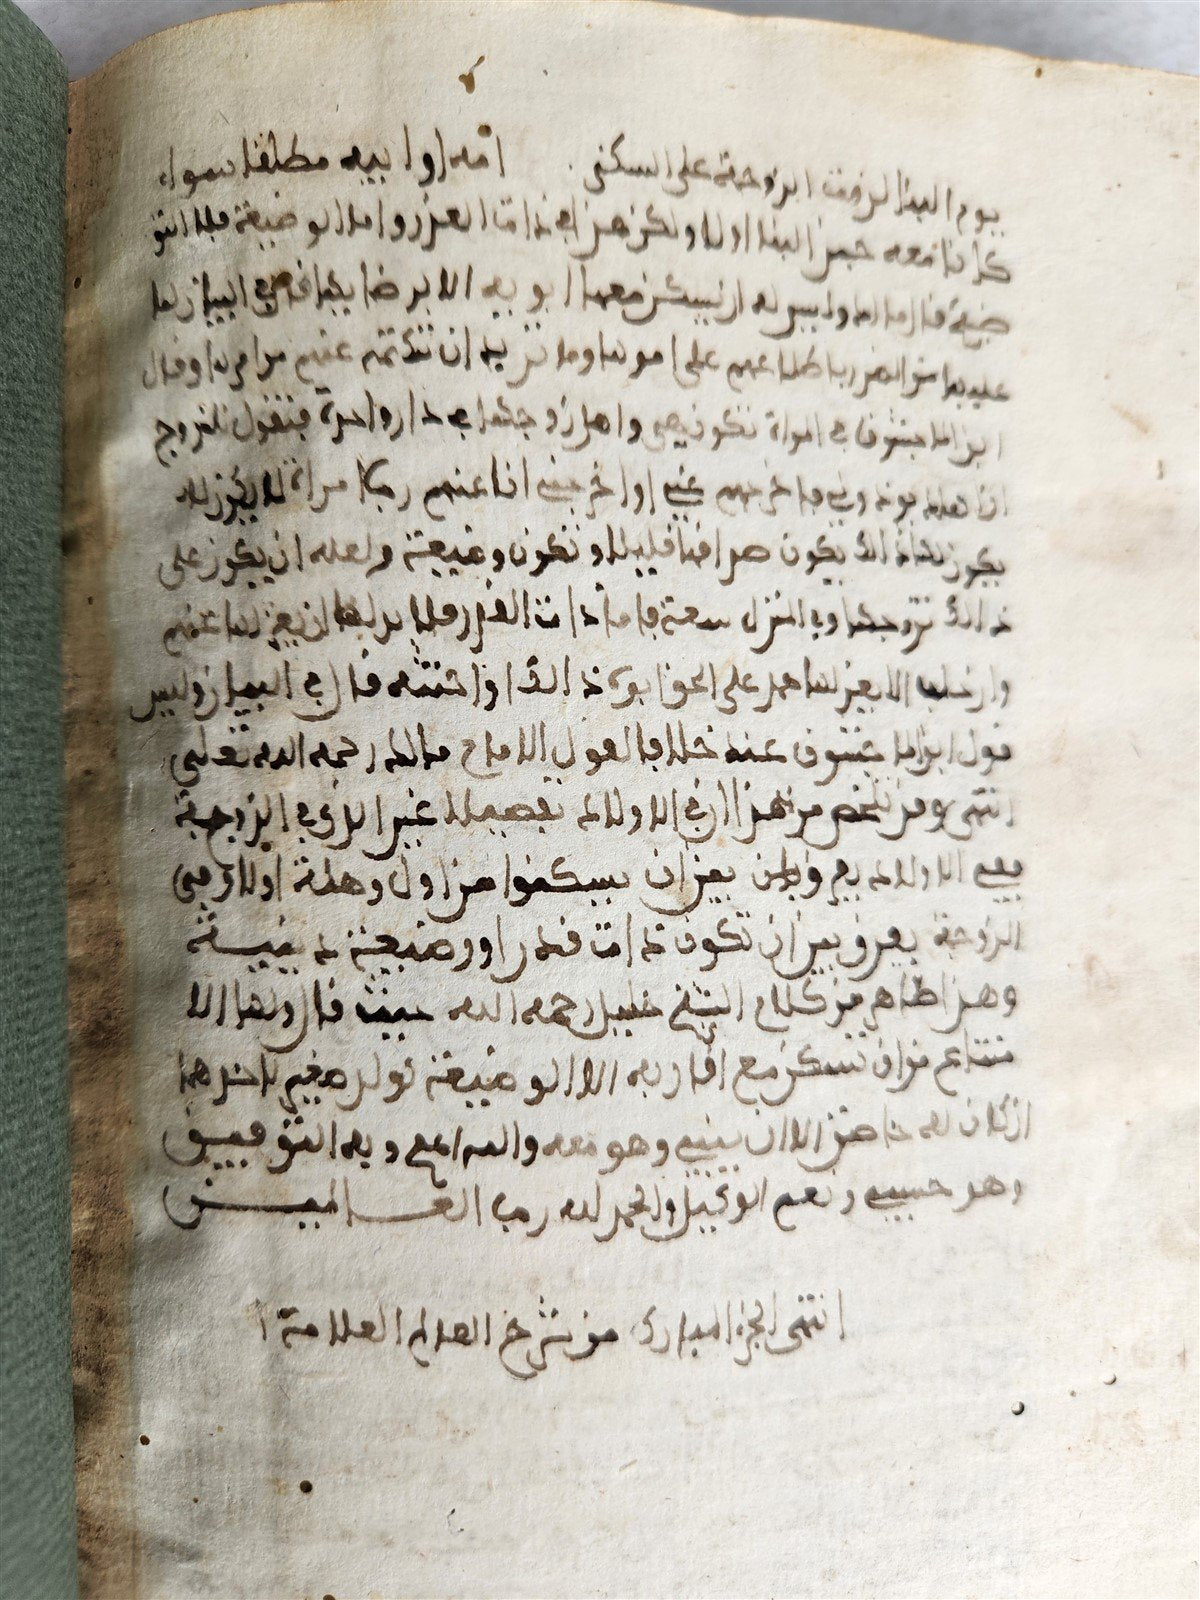 يوم البنا إذ وقعت الزوجة على السكنى امه او ابيه مطلقا سواء
كانا معه حين البنا اولا ولكن هذا في ذات القدر واما الوضيعة فلا التو
ضيح قال مالك وليس له ان يسكن معها ابويه الا برضا يها قال في البيان لما
عليها من الضرر باطلاعهم على امورها وما تريد ان تكتمه عنهم من امرها وقال
ابن الماجشون في المراة تكون هي واهل زوجها في دار واحدة فتقول للزوج
ان اهلك يوذونني فاخرجهم عني او اخرجني انا عنهم رب امراة لا يكون لها
يكون لها ذالك يكون صداقها قليلا وتكون وضيعة ولعله ان يكون على
ذالك تزوجها وفي المنزل سعة فاما ذات القدر فلا بد لها ان يعزلها عنهم
وان حلف الا يعزلها حمل على الحق ابره ذالك او احنثه قال في البيان وليس
قول ابن الماجشون عندي خلافا لقول الامام مالك رحمه الله تعالى
انتهى وقد تلخص من هذا ان في الاولاد تفصيلا غير الذي في الزوجة
ففي الاولاد يفرق بين ان يسكنوا من اول وهلة اولا وفي
الزوجة يفرق بين ان تكون ذات قدر او وضيعة دنيئة
وهذا ظاهر من كلام الشيخ خليل رحمه الله حيث قال ولها الا
متناع من ان تسكن مع اقاربه الا الوضيعة كولد صغير لاحدهما
ان كان له حاضن الا ان يبني وهو معه والله اعلم وبه التوفيق
وهو حسبي ونعم الوكيل والحمد لله رب العالمين
انتهى الجزء المبارك من شرح العالم العلامة